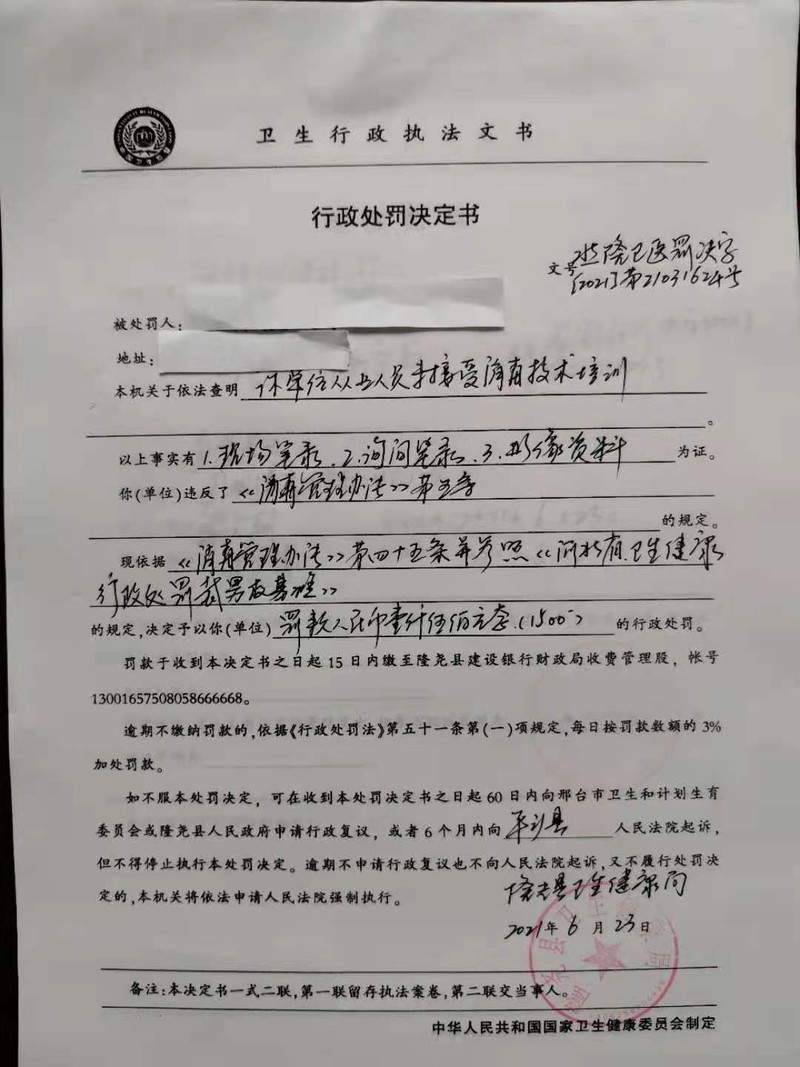 卫生行政执法文书
行政处罚决定书
文号 隆卫医罚决字
[2021]第21031624号
被处罚人：
地址：
本机关于依法查明 你单位从业人员未接受消毒技术培训
。
以上事实有 1.现场笔录、2.询问笔录、3.影像资料 为证。
你(单位)违反了《消毒管理办法》第五条
的规定。
现依据《消毒管理办法》第四十五条并参照《河北省卫生健康
行政处罚裁男权基准》
的规定,决定予以你(单位) 罚款人民币壹仟伍佰元整(1500) 的行政处罚。
罚款于收到本决定书之日起15日内缴至隆尧县建设银行财政局收费管理股，帐号
13001657508058666668。
逾期不缴纳罚款的,依据《行政处罚法》第五十一条第(一)项规定,每日按罚款数额的3%
加处罚款。
如不服本处罚决定，可在收到本处罚决定书之日起60日内向邢台市卫生和计划生育
委员会或隆尧县人民政府申请行政复议，或者6个月内向 人民法院起诉，
但不得停止执行本处罚决定。逾期不申请行政复议也不向人民法院起诉,又不履行处罚决
定的,本机关将依法申请人民法院强制执行。
隆尧县卫生健康局
2021年6月23日
备注:本决定书一式二联,第一联留存执法案卷,第二联交当事人。
中华人民共和国国家卫生健康委员会制定